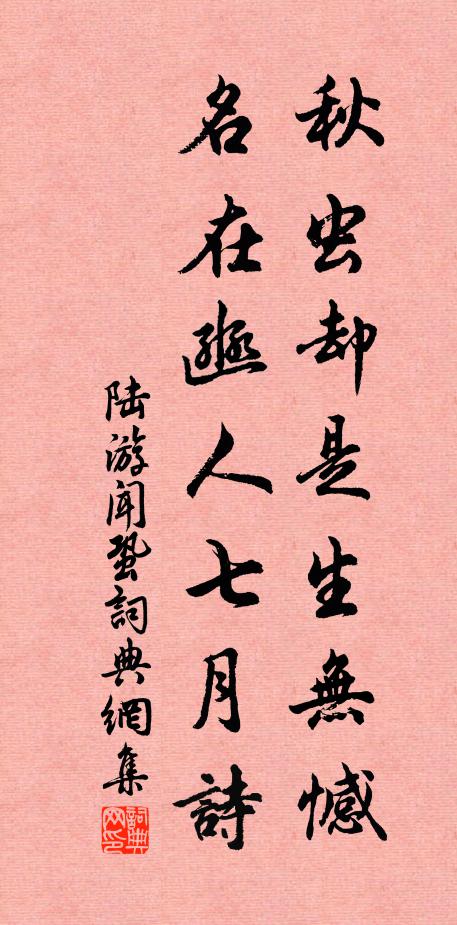 秋虫却是生無憾
名在豳人七月詩
陆游闻蛩詞典網集
詞典网印